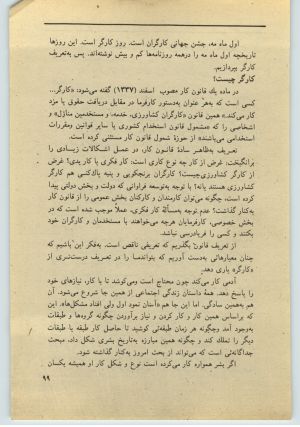 اول ماه مه، جشن جهانی کارگران است. روز کارگر است. این روزها
تاریخچه اول ماه مه را درهمه روزنامه‌ها کم و بیش نوشته‌اند. پس به‌تعریف
کارگر بپردازیم.
کارگر چیست؟
در ماده یک قانون کار مصوب اسفند (۱۳۳۷) گفته می‌شود: «کارگر...
کسی است که به‌هر عنوان به‌دستور کارفرما در مقابل دریافت حقوق یا مزد
کار می‌کند.» همین قانون «کارگران کشاورزی، خدمه، و مستخدمین منازل» و
اشخاصی را که «مشمول قانون استخدام کشوری یا سایر قوانین ومقررات
استخدامی می‌باشند» از حوزه شمول قانون کار مستثنی کرده است.
تعریف به‌ظاهر سادهٔ قانون کار، در عمل اشکالات زیادی را
برانگیخت. غرض از کار چه نوع کاری است: کار فکری یا کار یدی؟ غرض
از کارگر کشاورزی چیست؟ کارگران برنجکوبی و پنبه پاک‌کنی هم کارگر
کشاورزی هستند یانه؟ با توجه به‌توسعه فراوانی که دولت و بخش دولتی پیدا
کرده است، چگونه می‌توان کارمندان و کارکنان بخش عمومی را از قانون کار
به‌کنار گذاشت؟ عدم توجه به‌مسألهٔ کار فکری، عملاً موجب شده است که در
بخش خصوصی، کارفرمایان هرچه می‌خواهند با مستخدمان و کارگران خود
بکنند و کسی را فریادرسی نباشد.
از تعریف قانون بگذریم که تعریفی ناقص است. به‌فکر این باشیم که
چنان معیارهائی به‌دست آوریم که بتوانند ما را در تعریف درست‌تری از
«کارگر» یاری دهد.
آدمی کار می‌کند چون محتاج است ومی‌کوشد تا با کار، نیازهای خود
را پاسخ دهد. همهٔ داستان زندگی اجتماعی از همین جا شروع می‌شود. آن
هم به‌همین سادگی. اما این جا هم «آسان نمود اول ولی افتاد مشکل‌ها». این
که براساس همین کار و کار کردن و نیاز برآوردن چگونه گروه‌ها و طبقات
به‌وجود آمد وچگونه هر زمان طبقه‌ئی کوشید تا حاصل کار طبقه یا طبقات
دیگر را تملک کند و چگونه همین مبارزه به‌تاریخ بشری شکل داد، مبحث
جداگانه‌ئی است که می‌تواند از بحث امروز به‌کنار گذاشته شود.
اگر بشر همواره کار می‌کرده است نوع و شکل کار او همیشه یکسان
۹۹